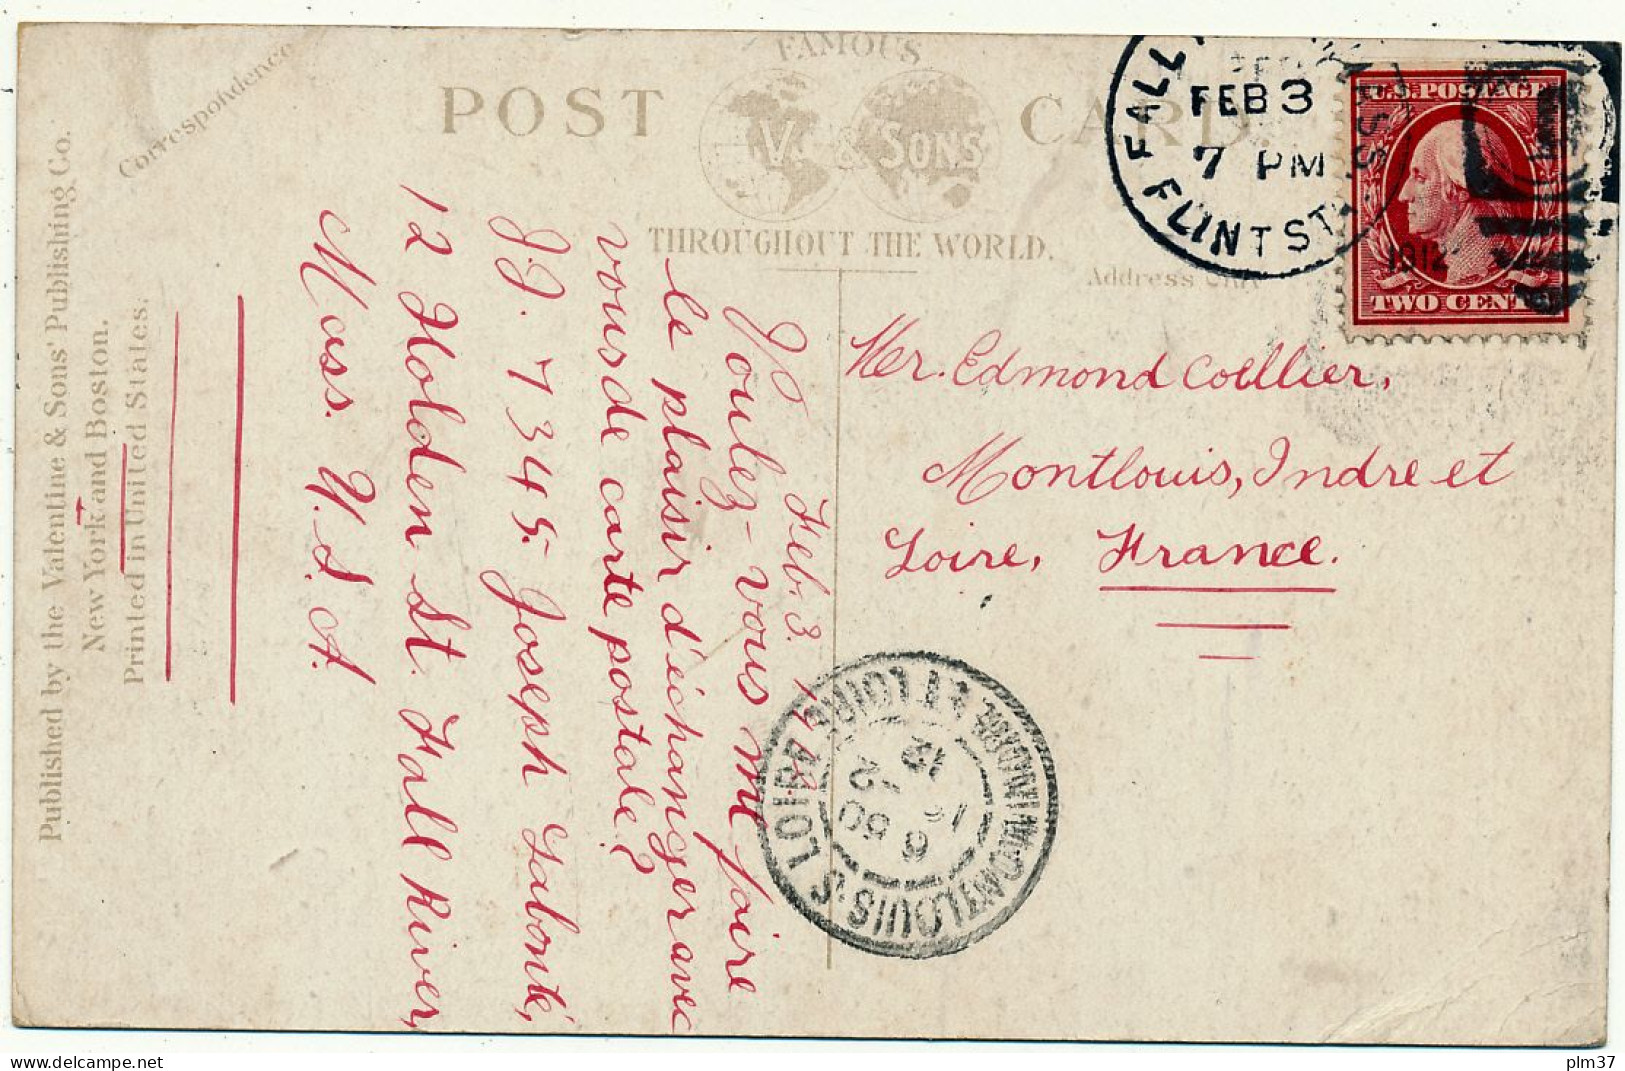 Published by the Valentine & Sons' Publishing Co.
New York and Boston.
Printed in United States.
Correspondence
POST CARD
FAMOUS
V. & SONS
THROUGHOUT THE WORLD.
Address Only
FALL
FLINT ST.
MASS
FEB 3
7 PM
1912
U.S. POSTAGE
TWO CENTS
Feb. 3.
Voulez-vous me faire
le plaisir d'échanger avec
vous de carte postale?
J.J. 7345. Joseph Labonté,
12 Holden St. Fall River,
Mass. U.S.A.
Mr. Edmond Collier,
Montlouis, Indre et
Loire, France.
MONTLOUIS-S-LOIRE
INDRE ET LOIRE